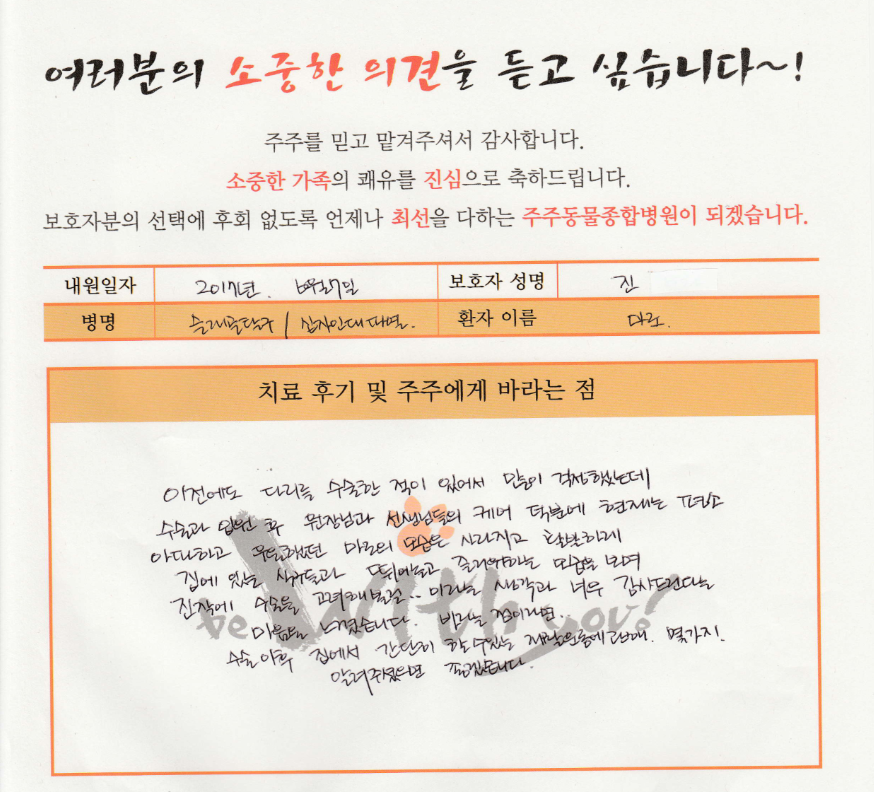 여러분의 소중한 의견을 듣고 싶습니다~!
주주를 믿고 맡겨주셔서 감사합니다.
소중한 가족의 쾌유를 진심으로 축하드립니다.
보호자분의 선택에 후회 없도록 언제나 최선을 다하는 주주동물종합병원이 되겠습니다.
내원일자 2017년. 6월27일 보호자 성명 진
병명 슬개골탈구 / 십자인대파열. 환자 이름 마로.
치료 후기 및 주주에게 바라는 점
이전에도 다리를 수술한 적이 있어서 많이 걱정했었는데
수술과 입원 후 원장님과 선생님들의 케어 덕분에 현재는 평소
아파하고 우울했던 마로의 모습은 사라지고 활발하게
집에 있는 식구들과 뛰어놀고 즐거워하는 모습을 보며
진작에 수술을 고려해볼걸.. 이라는 생각과 너무 감사드린다는
마음을 느꼈습니다. 바라는 점이라면..
수술 이후 집에서 간단히 할 수 있는 재활운동에 관해. 몇가지.
알려주셨으면 좋겠습니다.
be With you!